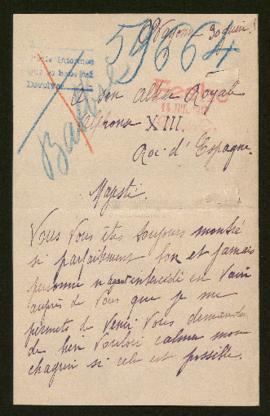 59664
30 Juin
A Son Altesse Royale
Alphonse XIII.
Roi d'Espagne.
Majesté.
Vous vous êtes toujours montré
si parfaitement bon et jamais
personne n'ayant intercédé en vain
auprès de Vous que je me
permets de venir Vous demander
de bien vouloir calmer mon
chagrin si cela est possible.